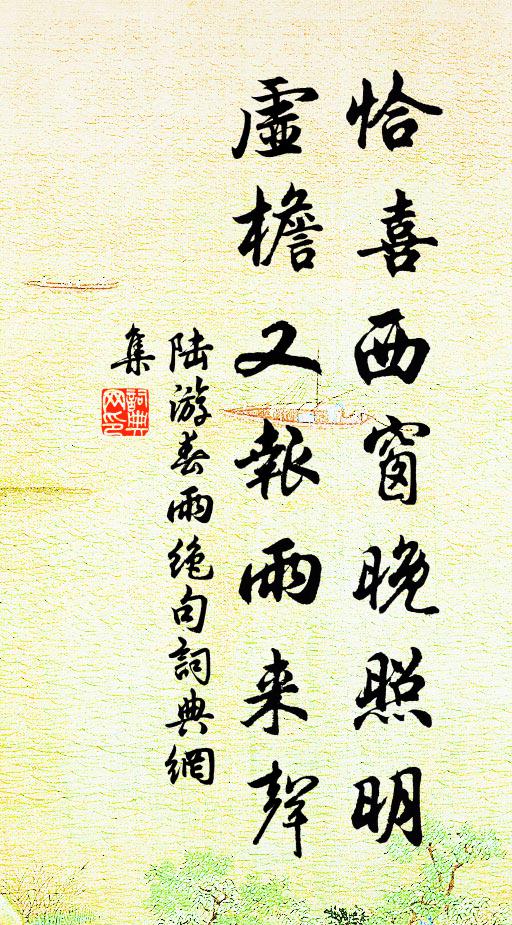 恰喜西窗晚照明
虛檐又報雨来聲
陆游春雨绝句詞典網
集
詞典
网印